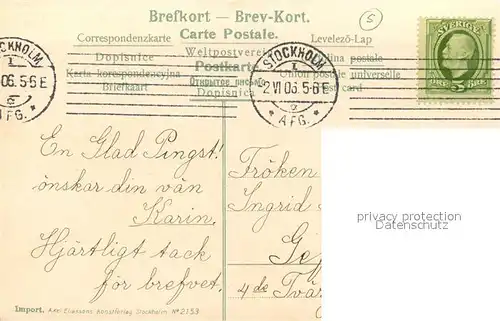 Brefkort — Brev-Kort.
Correspondenzkarte Carte Postale. Levelező-Lap
Dopisnice Weltpostverein
Karta korespondencyjna Postkarte Union postale universelle
Briefkaart Открытое письмо Post card
Dopisnica
STOCKHOLM
1
06. 5-6 E
6
* AFG. *
STOCKHOLM
1
2 VI 06. 5-6 E
6
* AFG. *
SVERIGE
5 ÖRE
5
En Glad Pingst!
önskar din vän
Karin.
Hjärtligt tack
för brefvet.
Fröken
Ingrid
Ge
4de Tvär
privacy protection
Datenschutz
Import. Axel Eliassons Konstförlag Stockholm No 2153